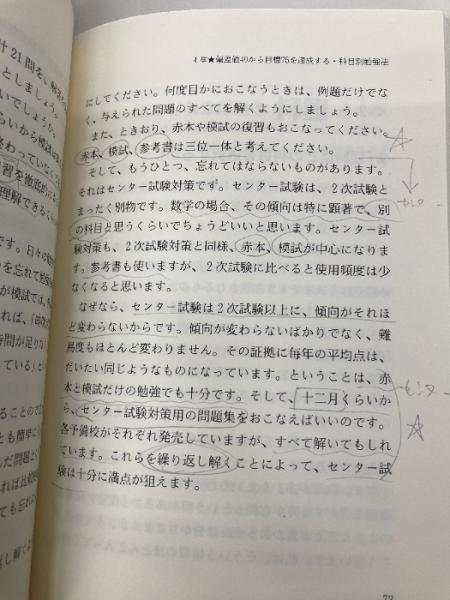 ４章★偏差値40から目標75を達成する・科目別勉強法
にしてください。何度目かにおこなうときは、例題だけでな
く、与えられた問題のすべてを解くようにしましょう。
また、ときおり、赤本や模試の復習もおこなってください。
赤本、模試、参考書は三位一体と考えてください。
そして、もうひとつ、忘れてはならないものがあります。
それはセンター試験対策です。センター試験は、２次試験と
まったく別物です。数学の場合、その傾向は特に顕著で、別
の科目と思うくらいでちょうどいいと思います。センター試
験対策も、２次試験対策と同様、赤本、模試が中心になりま
す。参考書も使いますが、２次試験に比べると使用頻度は少
なくなると思います。
なぜなら、センター試験は２次試験以上に、傾向がそれほ
ど変わらないからです。傾向が変わらないばかりでなく、難
易度もほとんど変わりません。その証拠に毎年の平均点は、
だいたい同じようなものになっています。ということは、赤
本と模試だけの勉強でも十分です。そして、十二月くらいか
ら、センター試験対策用の問題集をおこなえばいいのです。
各予備校がそれぞれ発売していますが、すべて解いてもしれ
ています。これらを繰り返し解くことによって、センター試
験は十分に満点が狙えます。
センター
センター
73
計21問を、
としましょう。
いでしょうひ
らいから模試
終わっていな
習を徹底的に
理解できるく
です。日々の
を忘れて
が模試では、
れば、「時
時間が足りな
している」と
ることのでは
とも簡単に
んだ問題と
れば比較的
ても忘れ
返し解く